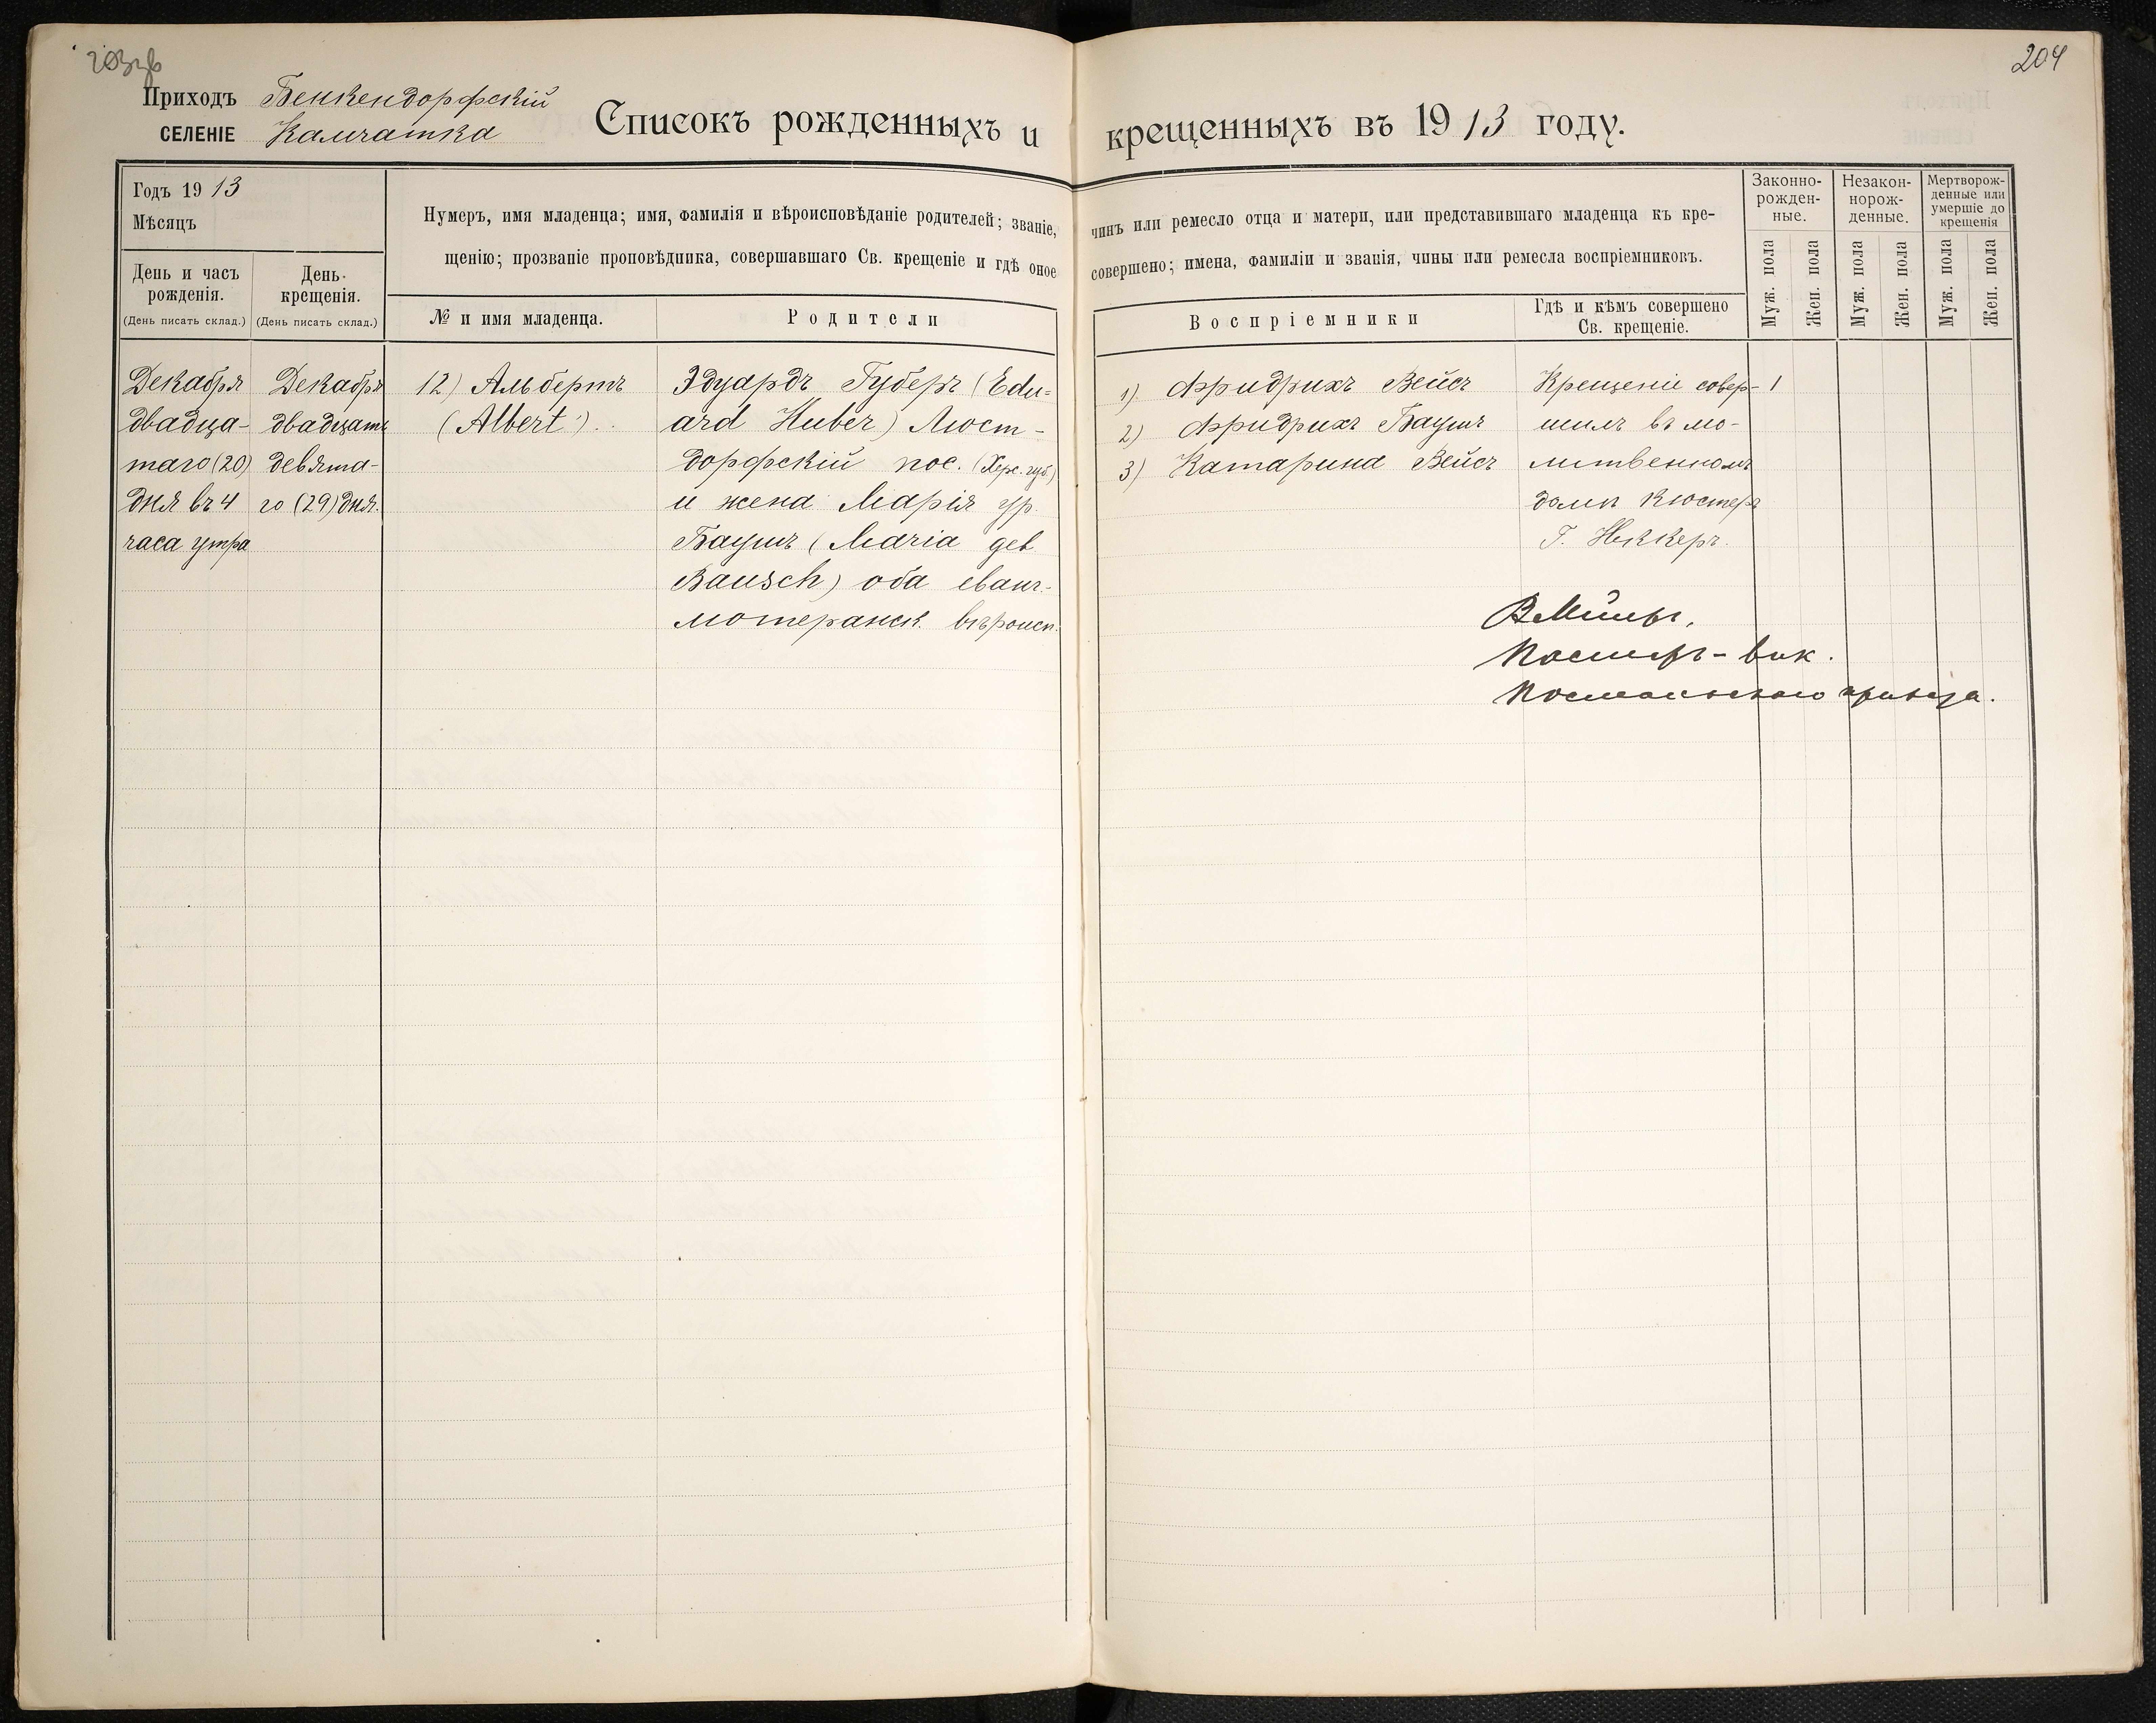 203 об
204
Приходъ Бенкендорфскій
СЕЛЕНІЕ Камчатка
Списокъ рожденныхъ и крещенныхъ въ 1913 году.
Годъ 1913
Мѣсяцъ
День и часъ рожденія.
(День писать склад.)
День крещенія.
(День писать склад.)
Нумеръ, имя младенца; имя, фамилія и вѣроисповѣданіе родителей; званіе, чинъ или ремесло отца и матери, или представившаго младенца къ кре-
щенію; прозваніе проповѣдника, совершавшаго Св. крещеніе и гдѣ оное совершено; имена, фамиліи и званія, чины или ремесла воспріемниковъ.
№ и имя младенца.
Родители
Воспріемники
Гдѣ и кѣмъ совершено
Св. крещеніе.
Законно-
рожден-
ные.
Незакон-
норож-
денные.
Мертворож-
денные или
умершіе до
крещенія
Муж. пола
Жен. пола
Муж. пола
Жен. пола
Муж. пола
Жен. пола
Декабря
двадца-
таго (20)
дня въ 4
часа утра
Декабря
двадцать
девята-
го (29) дня.
12) Альбертъ
(Albert)
Эдуардъ Губеръ (Edu-
ard Huber) Люст-
дорфскій пос. (Херс. губ)
и жена Марія ур.
Баушъ (Maria geb
Bausch) оба еванг.-
лютеранск. вѣроисп.
1) Фридрихъ Вейсъ
2) Фридрихъ Баушъ
3) Катарина Вейсъ
Крещеніе совер-
шилъ въ мо-
литвенномъ
домѣ Кюстеръ
Г. Неккеръ.
1
Пасторъ-вик.